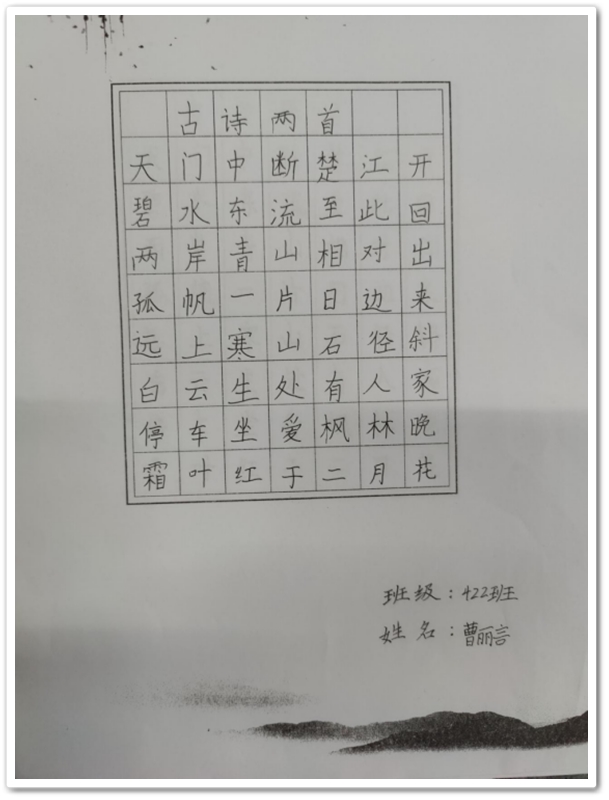 古诗两首
天门中断楚江开
碧水东流至此回
两岸青山相对出
孤帆一片日边来
远上寒山石径斜
白云生处有人家
停车坐爱枫林晚
霜叶红于二月花
班级：422班
姓名：曹丽言